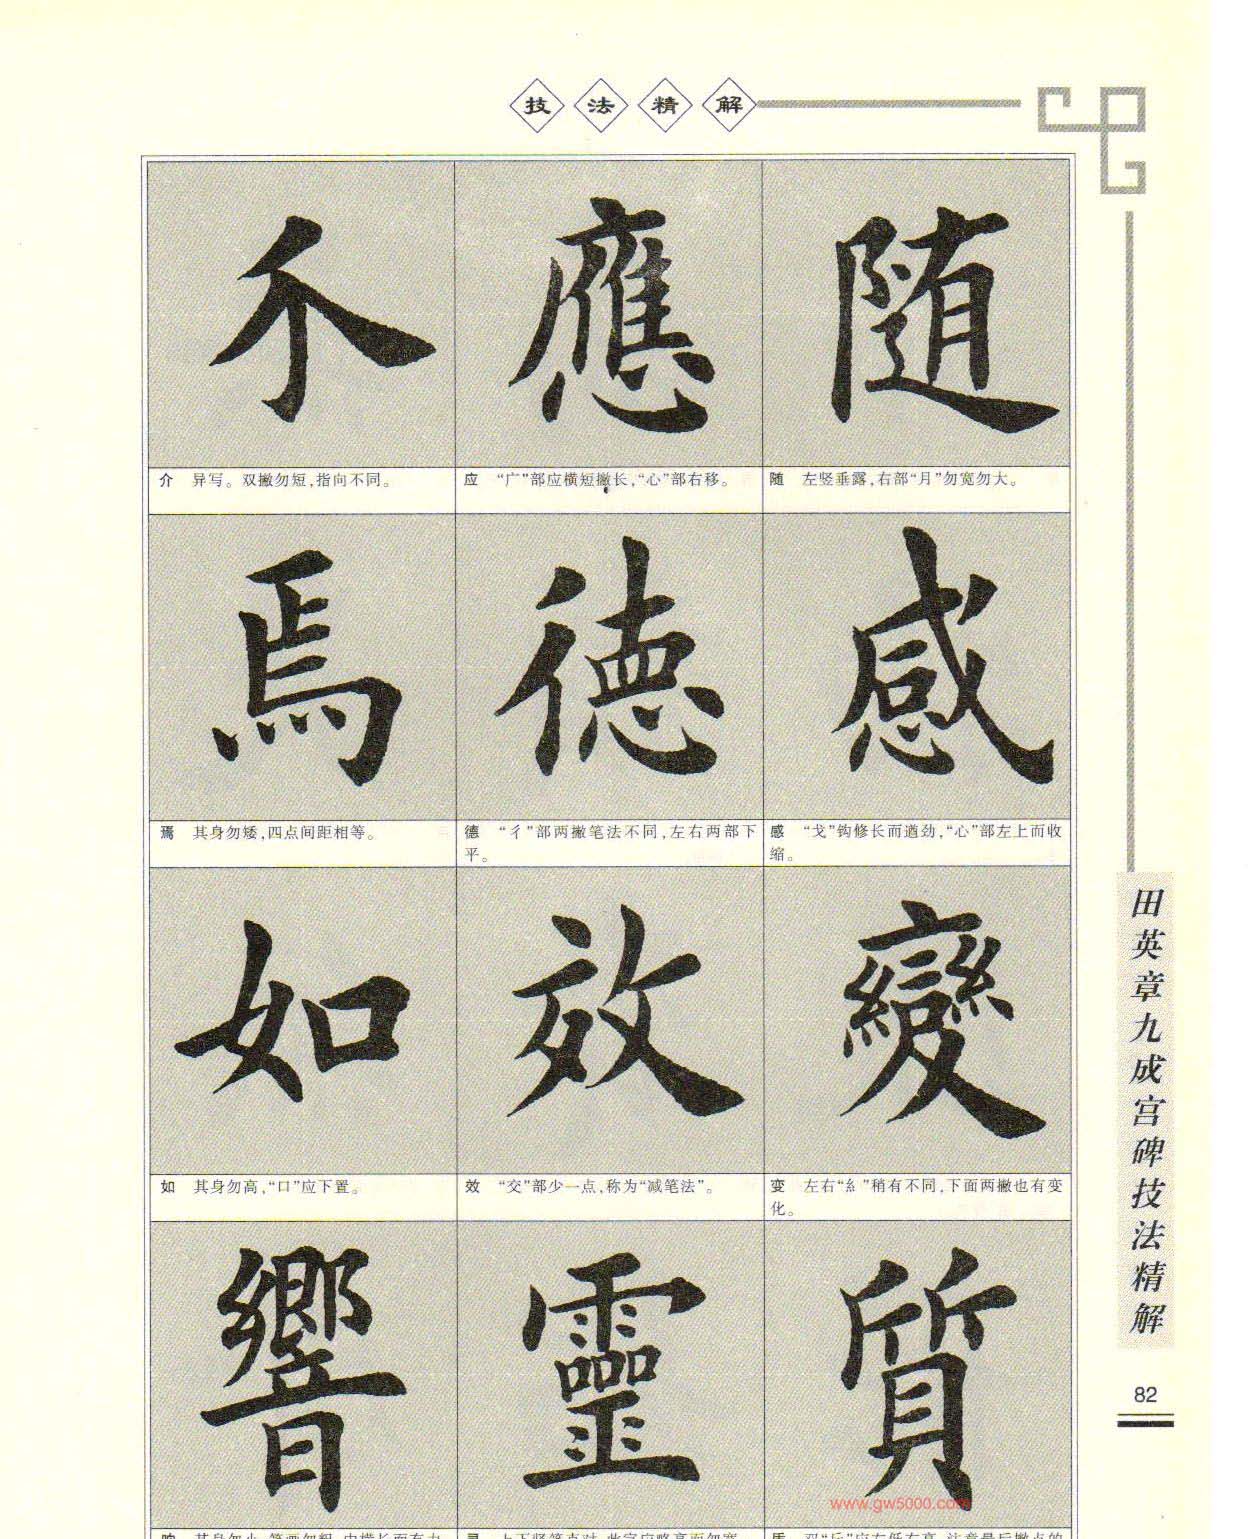 技法精解
不 應 随
介 异写。双撇勿短,指向不同。
应 “广”部应横短撇长,“心”部右移。
随 左竖垂露,右部“月”勿宽勿大。
焉 德 感
焉 其身勿矮,四点间距相等。
德 “彳”部两撇笔法不同,左右两部下
平。
感 “戈”钩修长而遒劲,“心”部左上而收
缩。
如 效 變
如 其身勿高,“口”应下置。
效 “交”部少一点,称为“减笔法”。
变 左右“糹”稍有不同,下面两撇也有变
化。
響 靈 質
www.gw5000.com
田英章九成宫碑技法精解
82